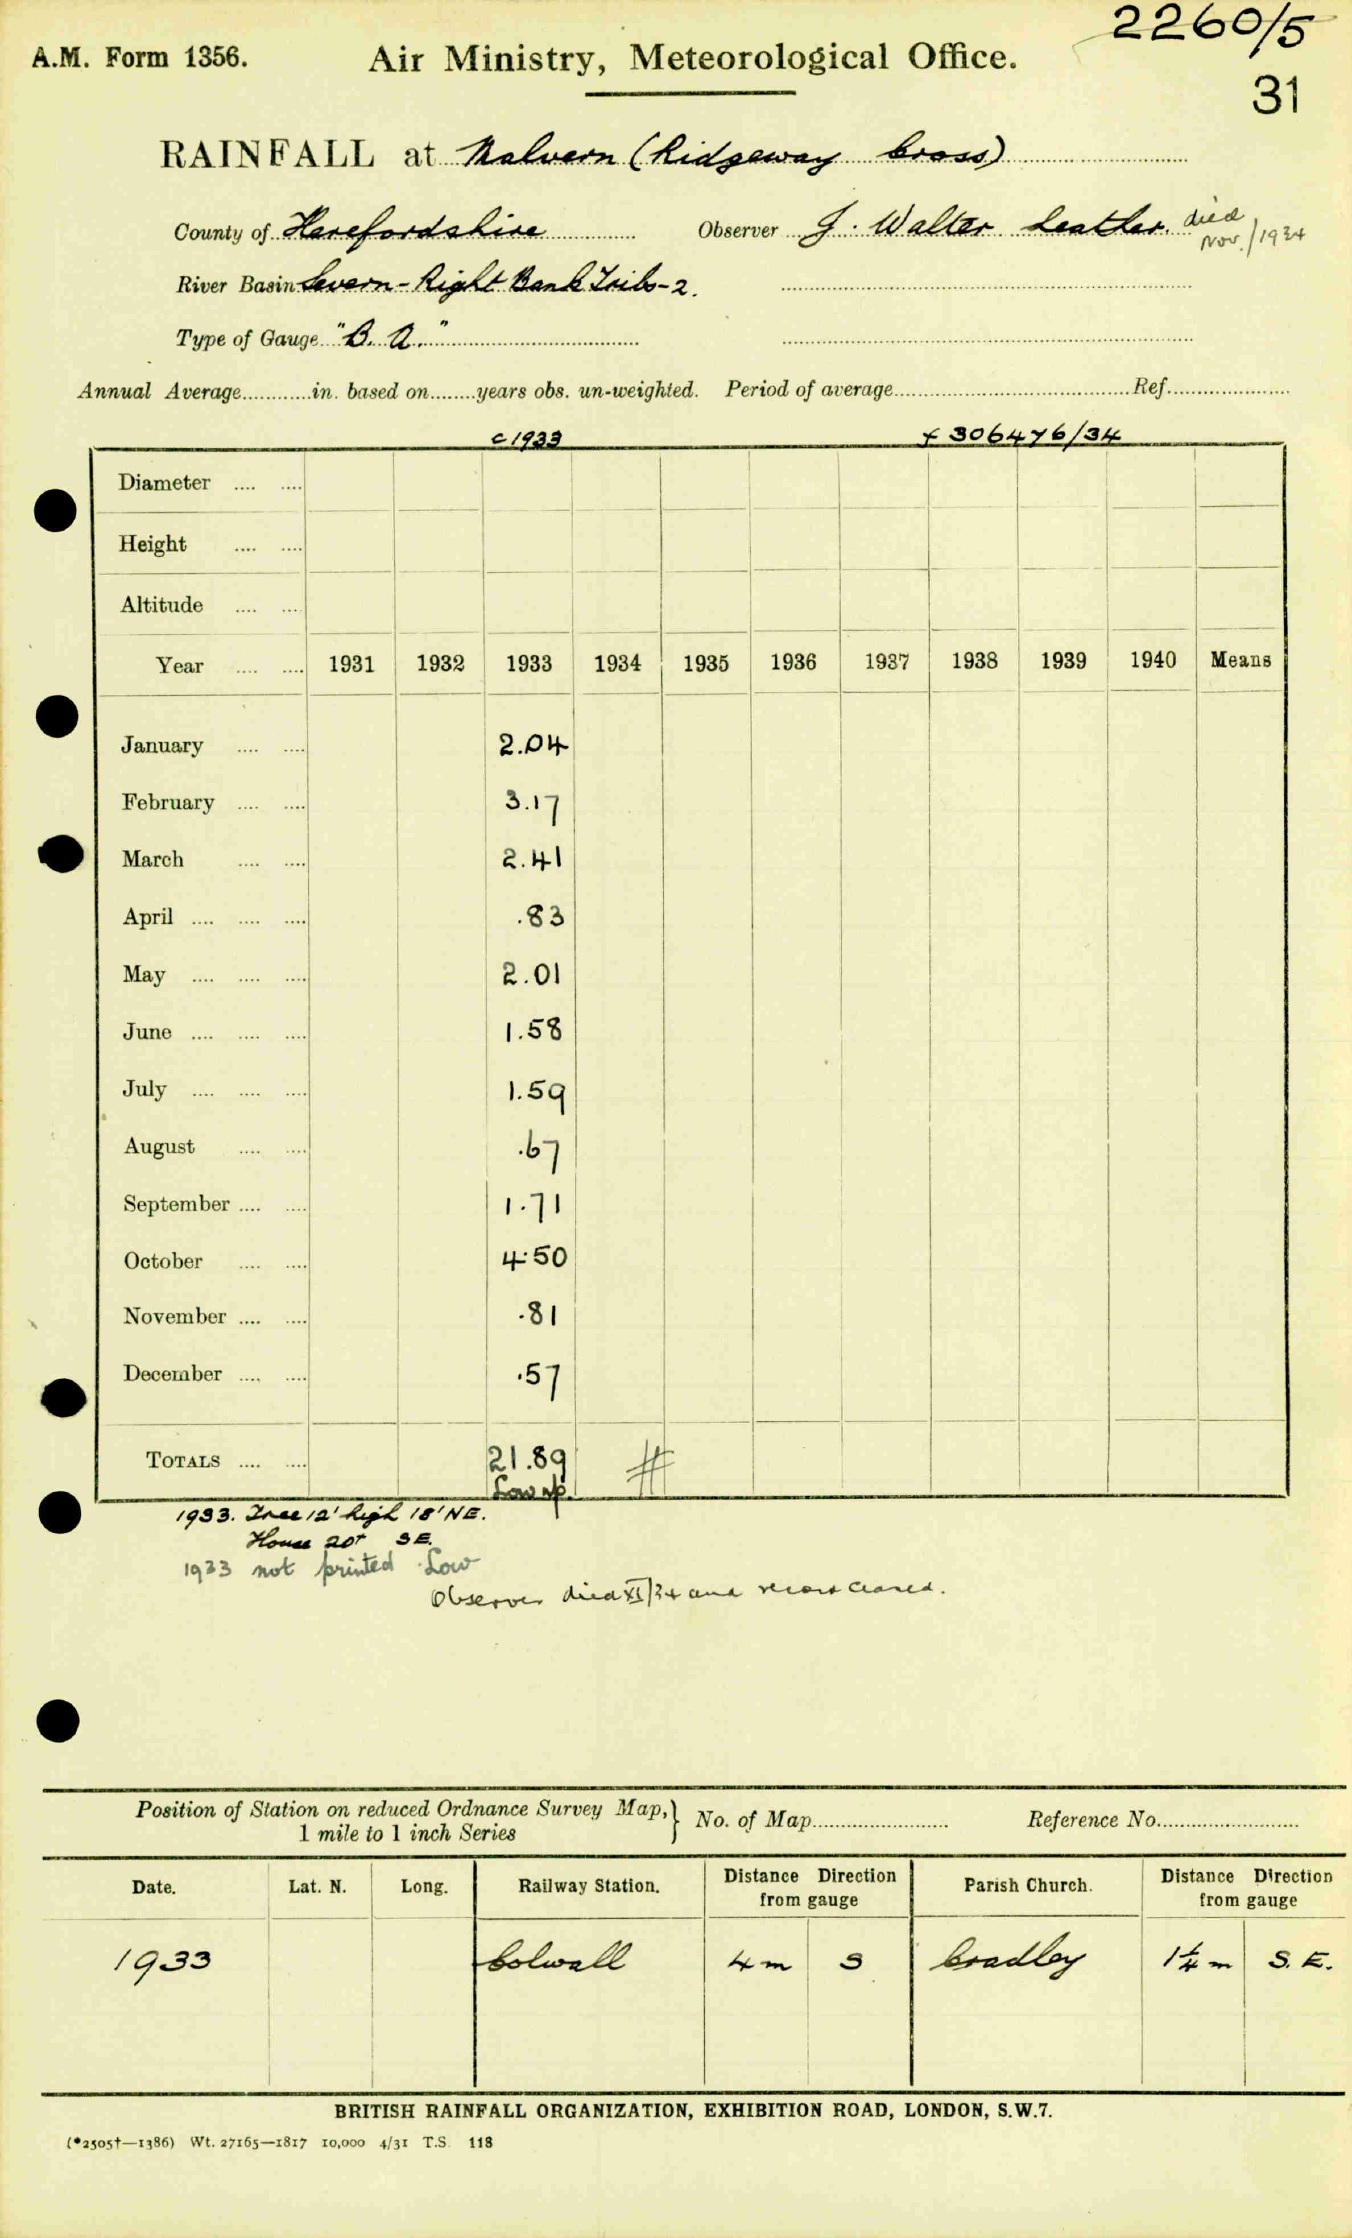 2260/5
A.M. Form 1356. Air Ministry, Meteorological Office.
31
RAINFALL at Malvern (Ridgeway Cross)
County of Herefordshire Observer J. Walter Leather. died Nov./1934
River Basin Severn - Right Bank Tribs - 2.
Type of Gauge "B. A."
Annual Average............in. based on........years obs. un-weighted. Period of average........................................Ref.....................
c 1933 f 306476/34
Diameter .... ....
Height .... ....
Altitude .... ....
Year .... .... 1931 1932 1933 1934 1935 1936 1937 1938 1939 1940 Means
January .... .... 2.04
February .... .... 3.17
March .... .... 2.41
April .... .... .... .83
May .... .... .... 2.01
June .... .... .... 1.58
July .... .... .... 1.59
August .... .... .67
September .... .... 1.71
October .... .... 4.50
November .... .... .81
December .... .... .57
TOTALS .... .... 21.89 #
Low
1933. Tree 12' high 18' NE.
House 20' SE.
1933 not printed Low
Observer died XI/34 and record ceased.
Position of Station on reduced Ordnance Survey Map,} No. of Map........................ Reference No.........................
1 mile to 1 inch Series
Date. Lat. N. Long. Railway Station. Distance Direction from gauge Parish Church. Distance Direction from gauge
1933 Colwall 4 m S Cradley 1¼ m S. E.
BRITISH RAINFALL ORGANIZATION, EXHIBITION ROAD, LONDON, S.W.7.
(*2505†—1386) Wt. 27165—1817 10,000 4/31 T.S. 118